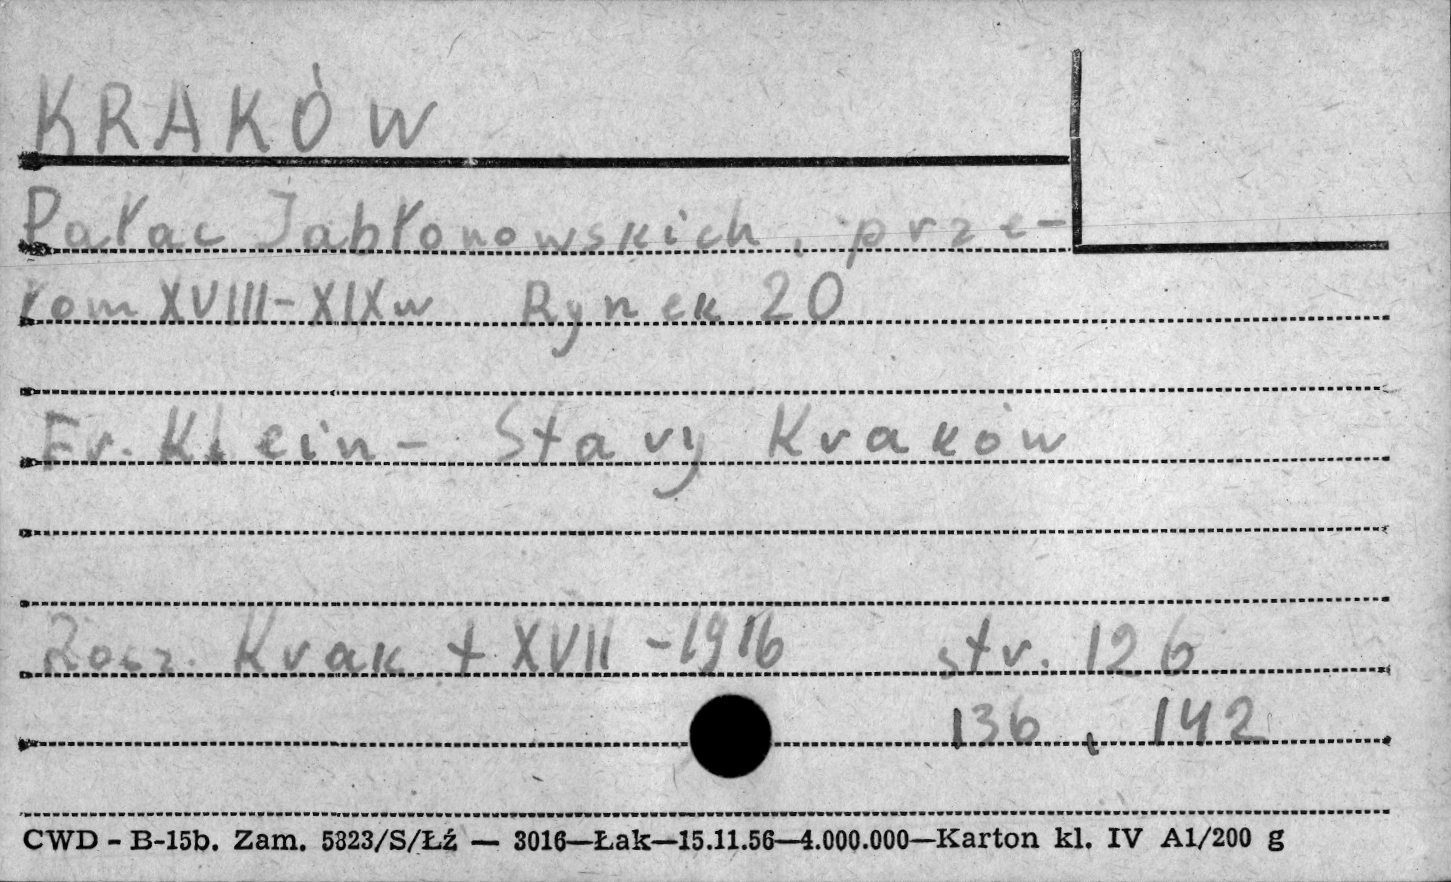 KRAKÓW
Pałac Jabłonowskich, prze-
łom XVIII-XIXw Rynek 20
Fr. Klein - Stary Kraków
Rocz. Krak t XVII - 1916 str. 126
136, 142
CWD - B-15b. Zam. 5823/S/Łź — 3016—Łak—15.11.56—4.000.000—Karton kl. IV A1/200 g